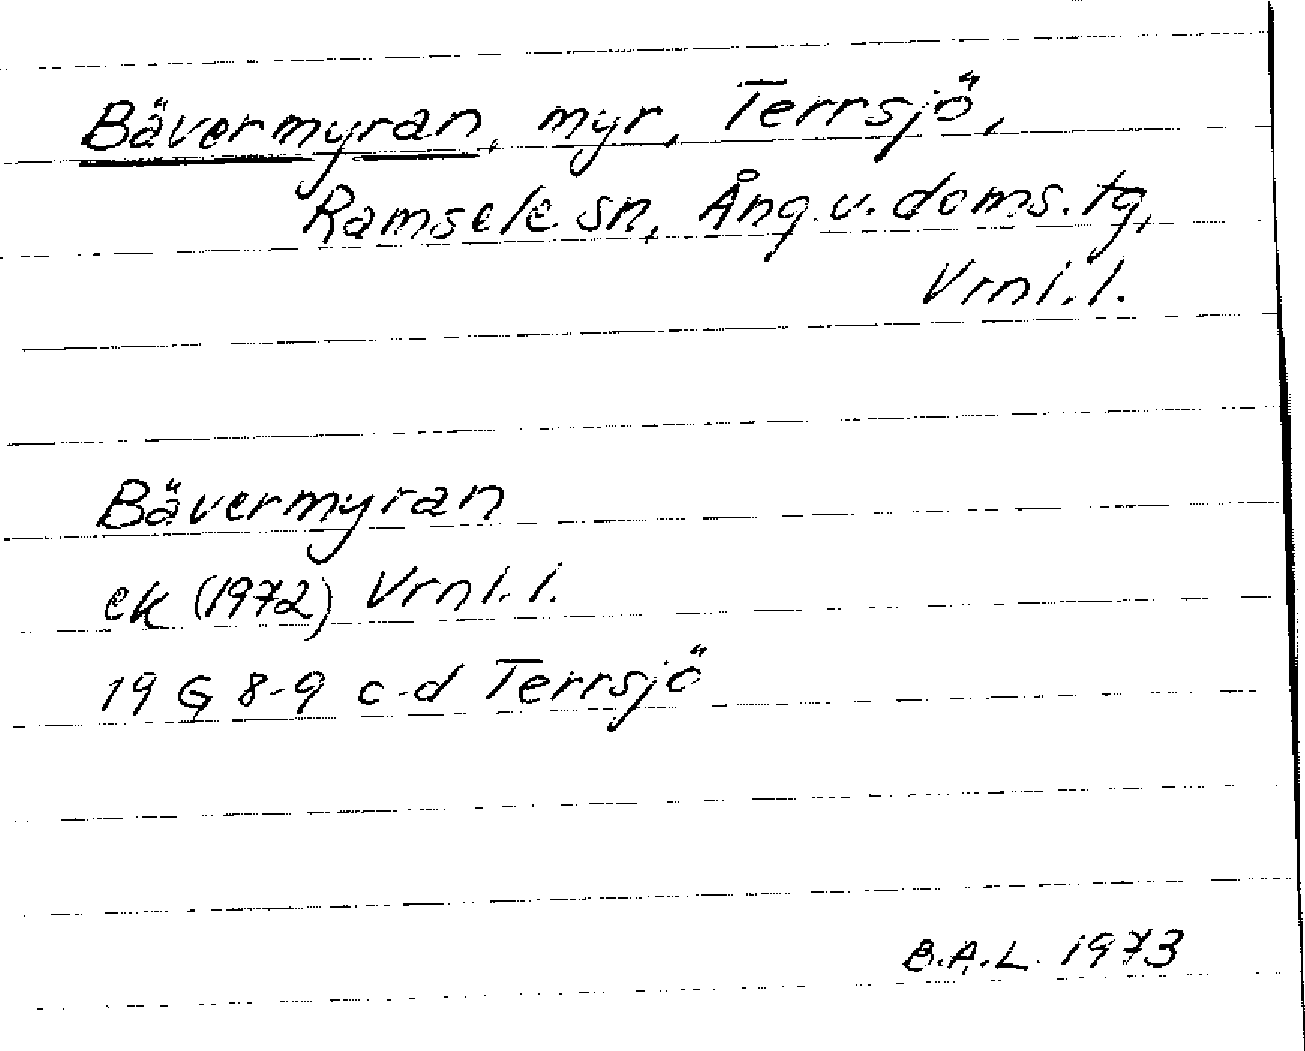 Bävermyran, myr, Terrsjö,
Ramsele sn, Ång. v. doms. tg,
Vrnl. l.
Bävermyran
ek (1972) Vrnl. l.
19 G 8-9 c-d Terrsjö
B.A.L. 1973